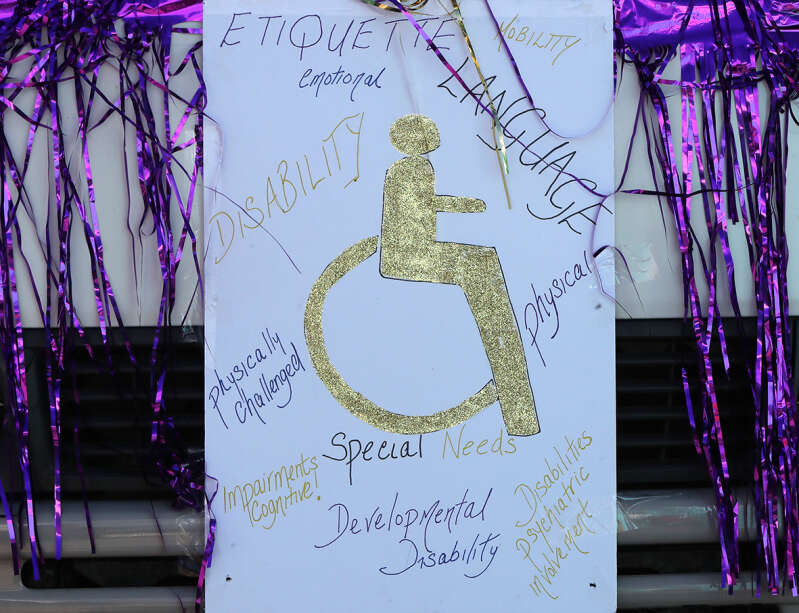 ETIQUETTE
MOBILITY
emotional
LANGUAGE
DISABILITY
physical
physically
challenged
Special Needs
Impairments
Cognitive!
Developmental
Disability
Disabilities
psychiatric
involvement